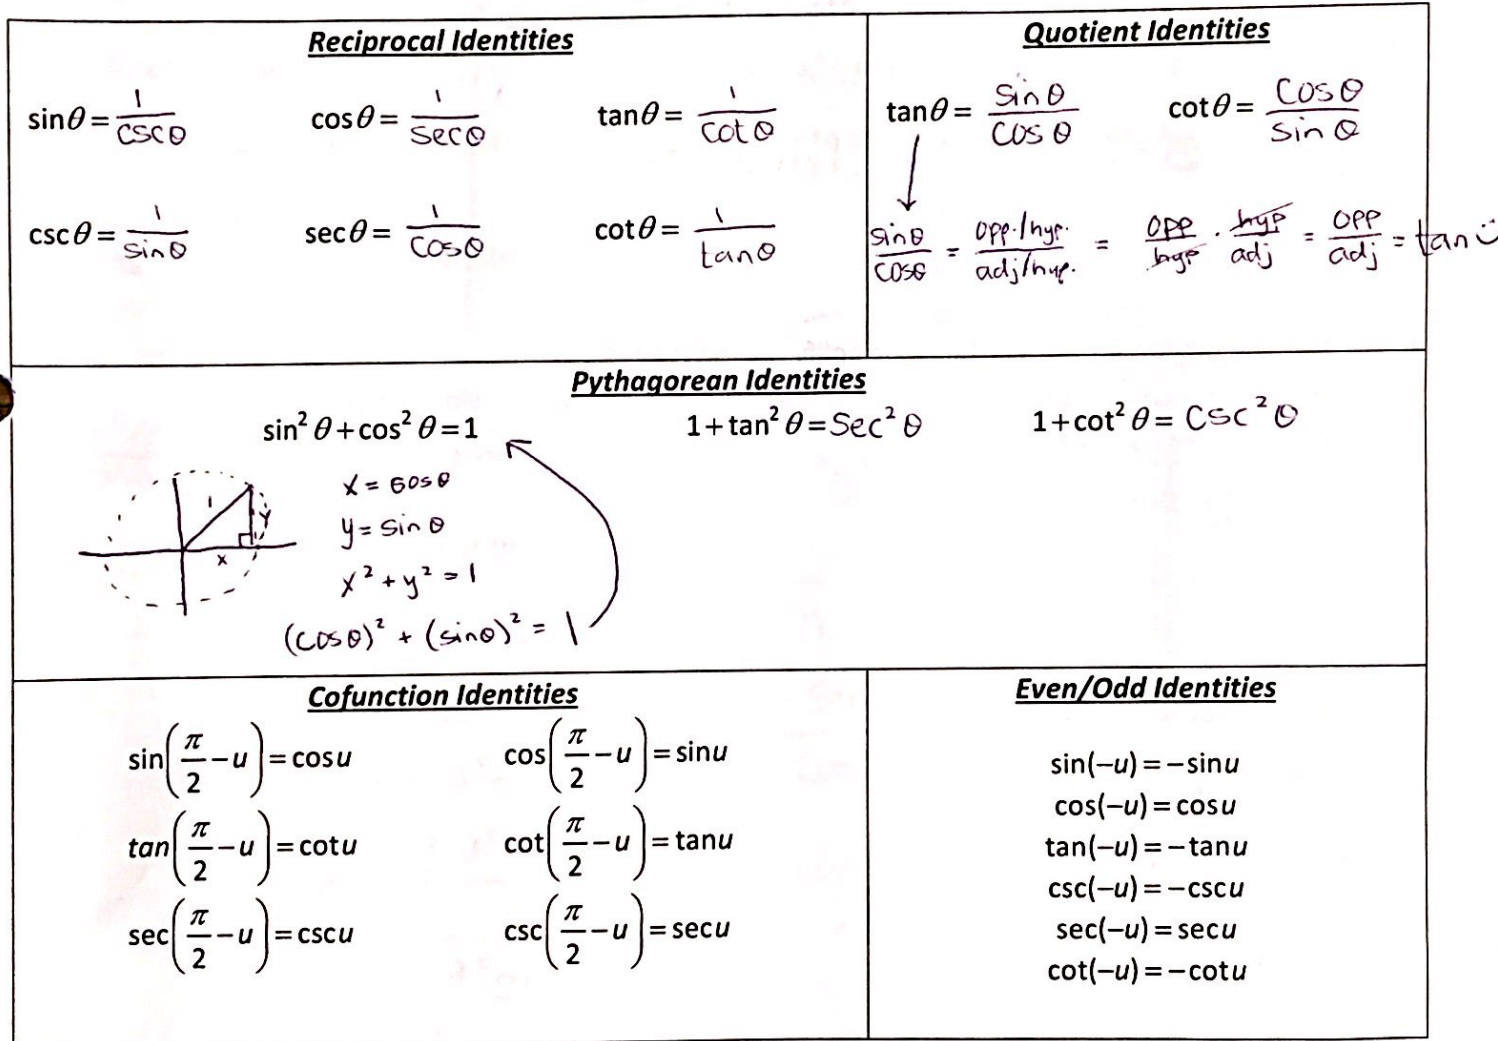 Reciprocal Identities
sinθ = 1/cscθ    cosθ = 1/secθ    tanθ = 1/cotθ
cscθ = 1/sinθ    secθ = 1/cosθ    cotθ = 1/tanθ
Quotient Identities
tanθ = sinθ/cosθ    cotθ = cosθ/sinθ
sinθ/cosθ = opp./hyp./adj/hyp. = opp/hyp · hyp/adj = opp/adj = tan
Pythagorean Identities
sin² θ + cos² θ = 1    1 + tan² θ = sec² θ    1 + cot² θ = csc² θ
1
y
x
x = cosθ
y = sinθ
x² + y² = 1
(cosθ)² + (sinθ)² = 1
Cofunction Identities
sin(π/2 − u) = cosu    cos(π/2 − u) = sinu
tan(π/2 − u) = cotu    cot(π/2 − u) = tanu
sec(π/2 − u) = cscu    csc(π/2 − u) = secu
Even/Odd Identities
sin(−u) = −sinu
cos(−u) = cosu
tan(−u) = −tanu
csc(−u) = −cscu
sec(−u) = secu
cot(−u) = −cotu